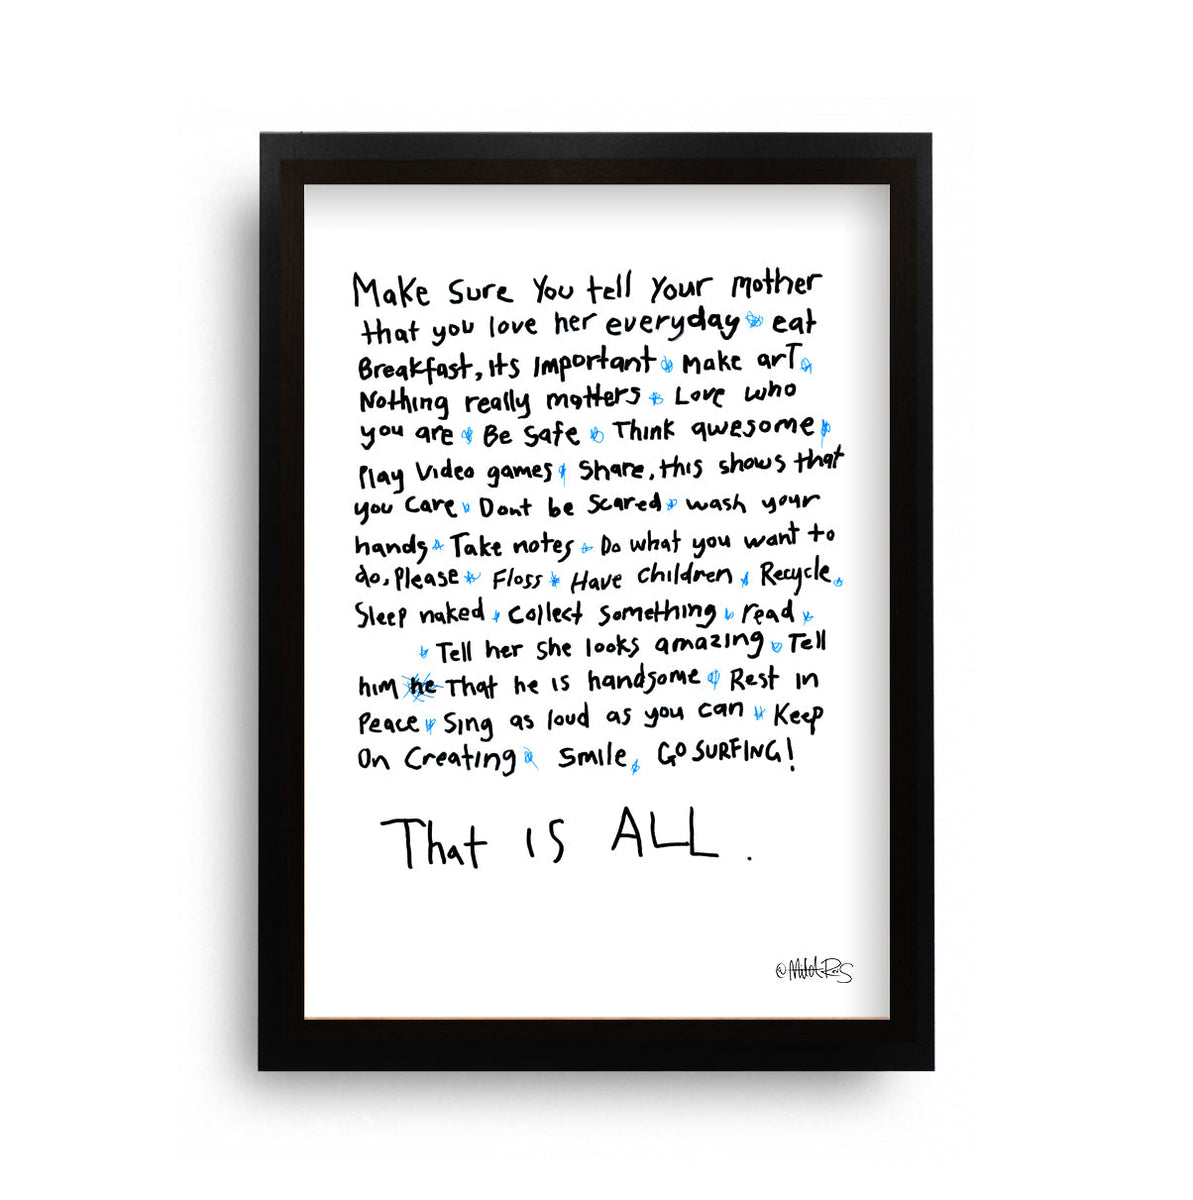 Make Sure You tell Your mother
that you love her everyday * eat
Breakfast, its Important * make art *
Nothing really matters * Love who
you are * Be Safe * Think awesome *
Play Video games * Share, this shows that
you Care * Dont be Scared * wash your
hands * Take notes * Do what you want to
do, Please * Floss * Have Children * Recycle *
Sleep naked * Collect Something * read *
* Tell her She looks amazing * Tell
him he That he is handsome * Rest in
Peace * Sing as loud as you can * Keep
On Creating * Smile * GO SURFING!
That IS ALL.